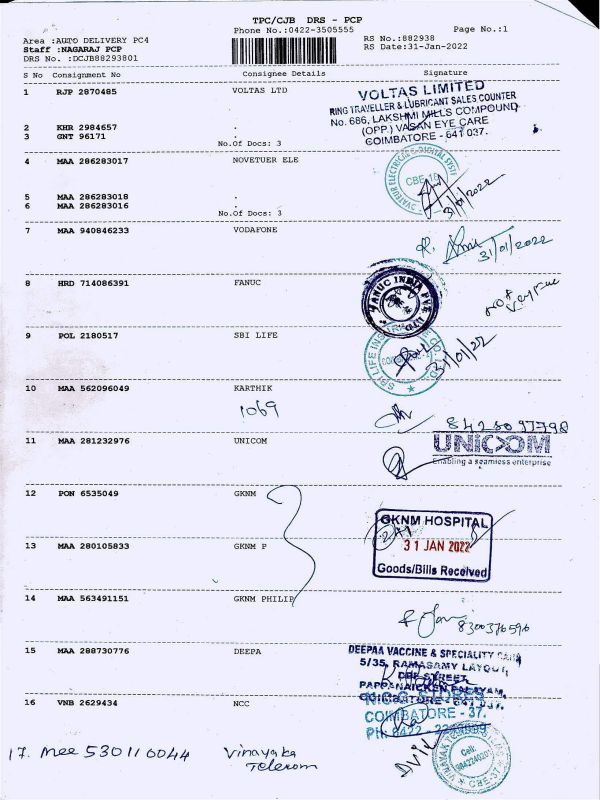 TPC/CJB DRS - PCP
Phone No.:0422-3505555
Page No.:1
Area :AUTO DELIVERY PC4
RS No.:882938
Staff :NAGARAJ PCP
RS Date:31-Jan-2022
DRS No. :DCJB88293801
S No Consignment No Consignee Details Signature
1 RJP 2870485 VOLTAS LTD
VOLTAS LIMITED
RING TRAVELLER & LUBRICANT SALES COUNTER
No. 686, LAKSHMI MILLS COMPOUND
(OPP.) VASAN EYE CARE
COIMBATORE - 641 037.
2 KHR 2984657 .
3 GNT 96171 .
No.Of Docs: 3
4 MAA 286283017 NOVETUER ELE
CBE-18
31/01/2022
5 MAA 286283018 .
6 MAA 286283016 .
No.Of Docs: 3
7 MAA 940846233 VODAFONE
31/01/2022
8 HRD 714086391 FANUC
FANUC INDIA PVT LTD
not
9 POL 2180517 SBI LIFE
SBI LIFE
31/01/22
10 MAA 562096049 KARTHIK
1069
11 MAA 281232976 UNICOM
UNICOM
Enabling a seamless enterprise
12 PON 6535049 GKNM
GKNM HOSPITAL
31 JAN 2022
Goods/Bills Received
13 MAA 280105833 GKNM P
14 MAA 563491151 GKNM PHILIP
8300376596
15 MAA 288730776 DEEPA
DEEPAA VACCINE & SPECIALITY
5/35, RAMASAMY LAYOUT,
STREET,
PAPPANAICKEN PALAYAM,
COIMBATORE - 641 037.
16 VNB 2629434 NCC
STORES
COIMBATORE - 37.
Ph: 0422 -
17. Mee 530110044 Vinayaka
Telecom
VINAYAK
Cell:
CBE-37